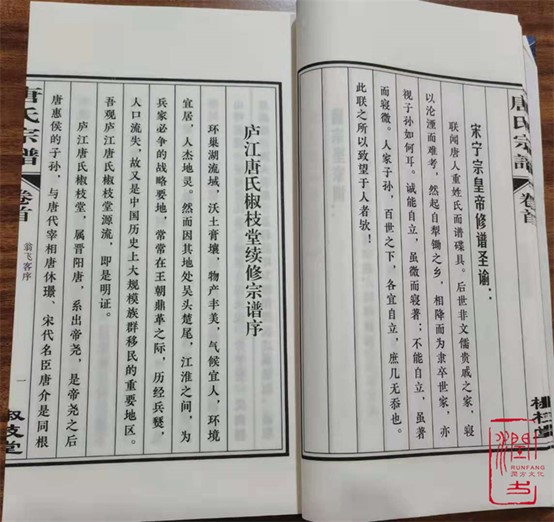 唐氏宗谱
卷首
宋宁宗皇帝修谱圣谕：
联闻唐人重姓氏而谱碟具。后世非文儒贵戚之家，寝
以沦湮而难考，然起自犁锄之乡，相降而为隶卒世家，亦
视子孙如何耳。诚可自立，虽微而寝著；不能自立，虽著
而寝微。人家子孙，百世之下，各宜自立，庶几无忝也。
此联之所以致望于人者欤！
庐江唐氏椒枝堂续修宗谱序
环巢湖流域，沃土膏壤，物产丰美，气候宜人，环境
宜居，人杰地灵。然而因其地处吴头楚尾，江淮之间，为
兵家必争的战略要地，常常在王朝鼎革之际，历经兵燹，
人口流失，故又是中国历史上大规模族群移民的重要地区。
吾观庐江唐氏椒枝堂源流，即是明证。
庐江唐氏椒枝堂，属晋阳唐，系出帝尧，是帝尧之后
唐惠侯的子孙，与唐代宰相唐休璟、宋代名臣唐介是同根
唐氏宗谱
卷首
翁飞客序
一
椒枝堂
RUNFANG
润方文化